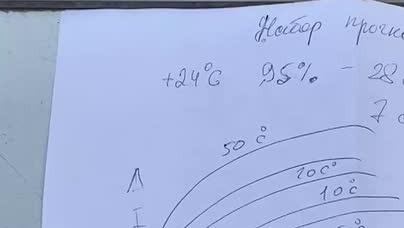 Набор прочно
+24°C 95% - 28
7
50 °C
20 C°
10 °C
I